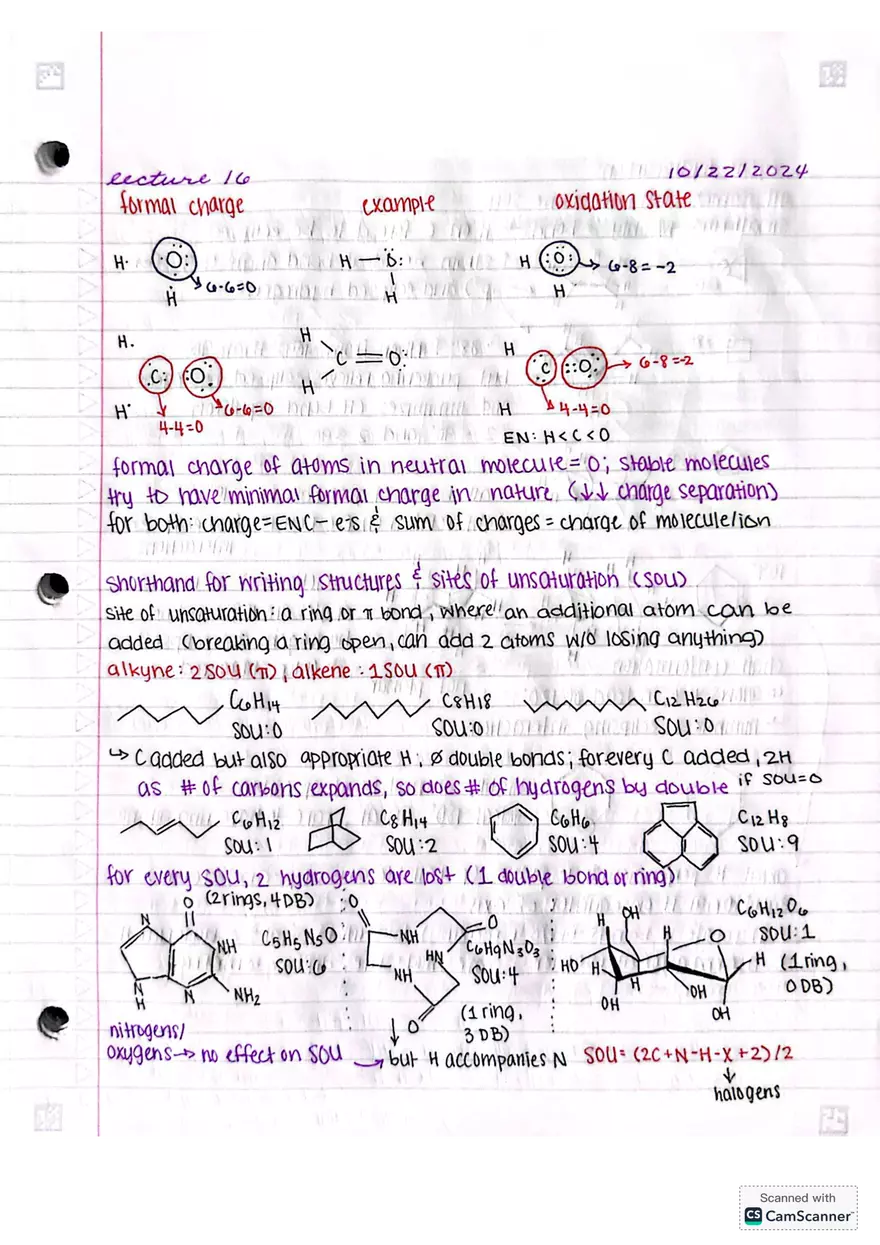 lecture 16 10/22/2024
formal charge example oxidation state
H· :O: H—O: H :O: → 6-8=-2
6-6=0
H H H
H. H H
C: :O: C=O: C ::O: → 6-8=-2
H
H· 6-6=0 H 4-4=0
4-4=0
EN: H<C<O
formal charge of atoms in neutral molecule=0; stable molecules
try to have minimal formal charge in nature (↓↓ charge separation)
for both: charge=ENC-e⁻s & sum of charges=charge of molecule/ion
shorthand for writing structures & sites of unsaturation (SOU)
site of unsaturation: a ring or π bond, where an additional atom can be
added (breaking a ring open, can add 2 atoms w/o losing anything)
alkyne: 2 SOU (π), alkene: 1 SOU (π)
C6H14 C8H18 C12H26
SOU:0 SOU:0 SOU:0
↳ C added but also appropriate H, ∅ double bonds; for every C added, 2H
as # of carbons expands, so does # of hydrogens by double if SOU=0
C6H12 C8H14 C6H6 C12H8
SOU:1 SOU:2 SOU:4 SOU:9
for every SOU, 2 hydrogens are lost (1 double bond or ring)
O (2 rings, 4DB) O
N NH C5H5N5O NH O H OH H O C6H12O6
SOU:6 HN C6H9N3O3 SOU:1
N N NH2 NH SOU:4 HO H H OH H (1 ring,
H O (1 ring, OH OH 0 DB)
3 DB)
nitrogens/
oxygens→ no effect on SOU → but H accompanies N SOU= (2C+N-H-X+2)/2
↓
halogens
Scanned with
CS CamScanner